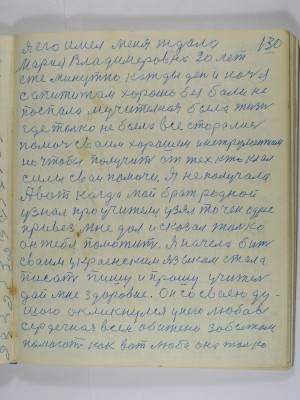 130
я его имел меня ждала
Мария Владимеровна 20 лет
сте минутно кажды ден и ноч я
сапититам хорошо без бали не
поспала мучителная была жизн
где толко не была все старалис
помоч своим хорошем инструментам
но чтобы получит от тех кто клал
силы своя помочи. Я не получала
А вот когда мой брат родной
узнал про учители узял точен
привез мне дал и сказал толко
он тебя поможит. Я начела бит
своим украенским языкам стала
писат пишу и прошу учител
дай мне здоровие. Он со своею ду-
шою откликнулся у него любов
сердечная всем обижено заботам
помогат как вот люба она толко